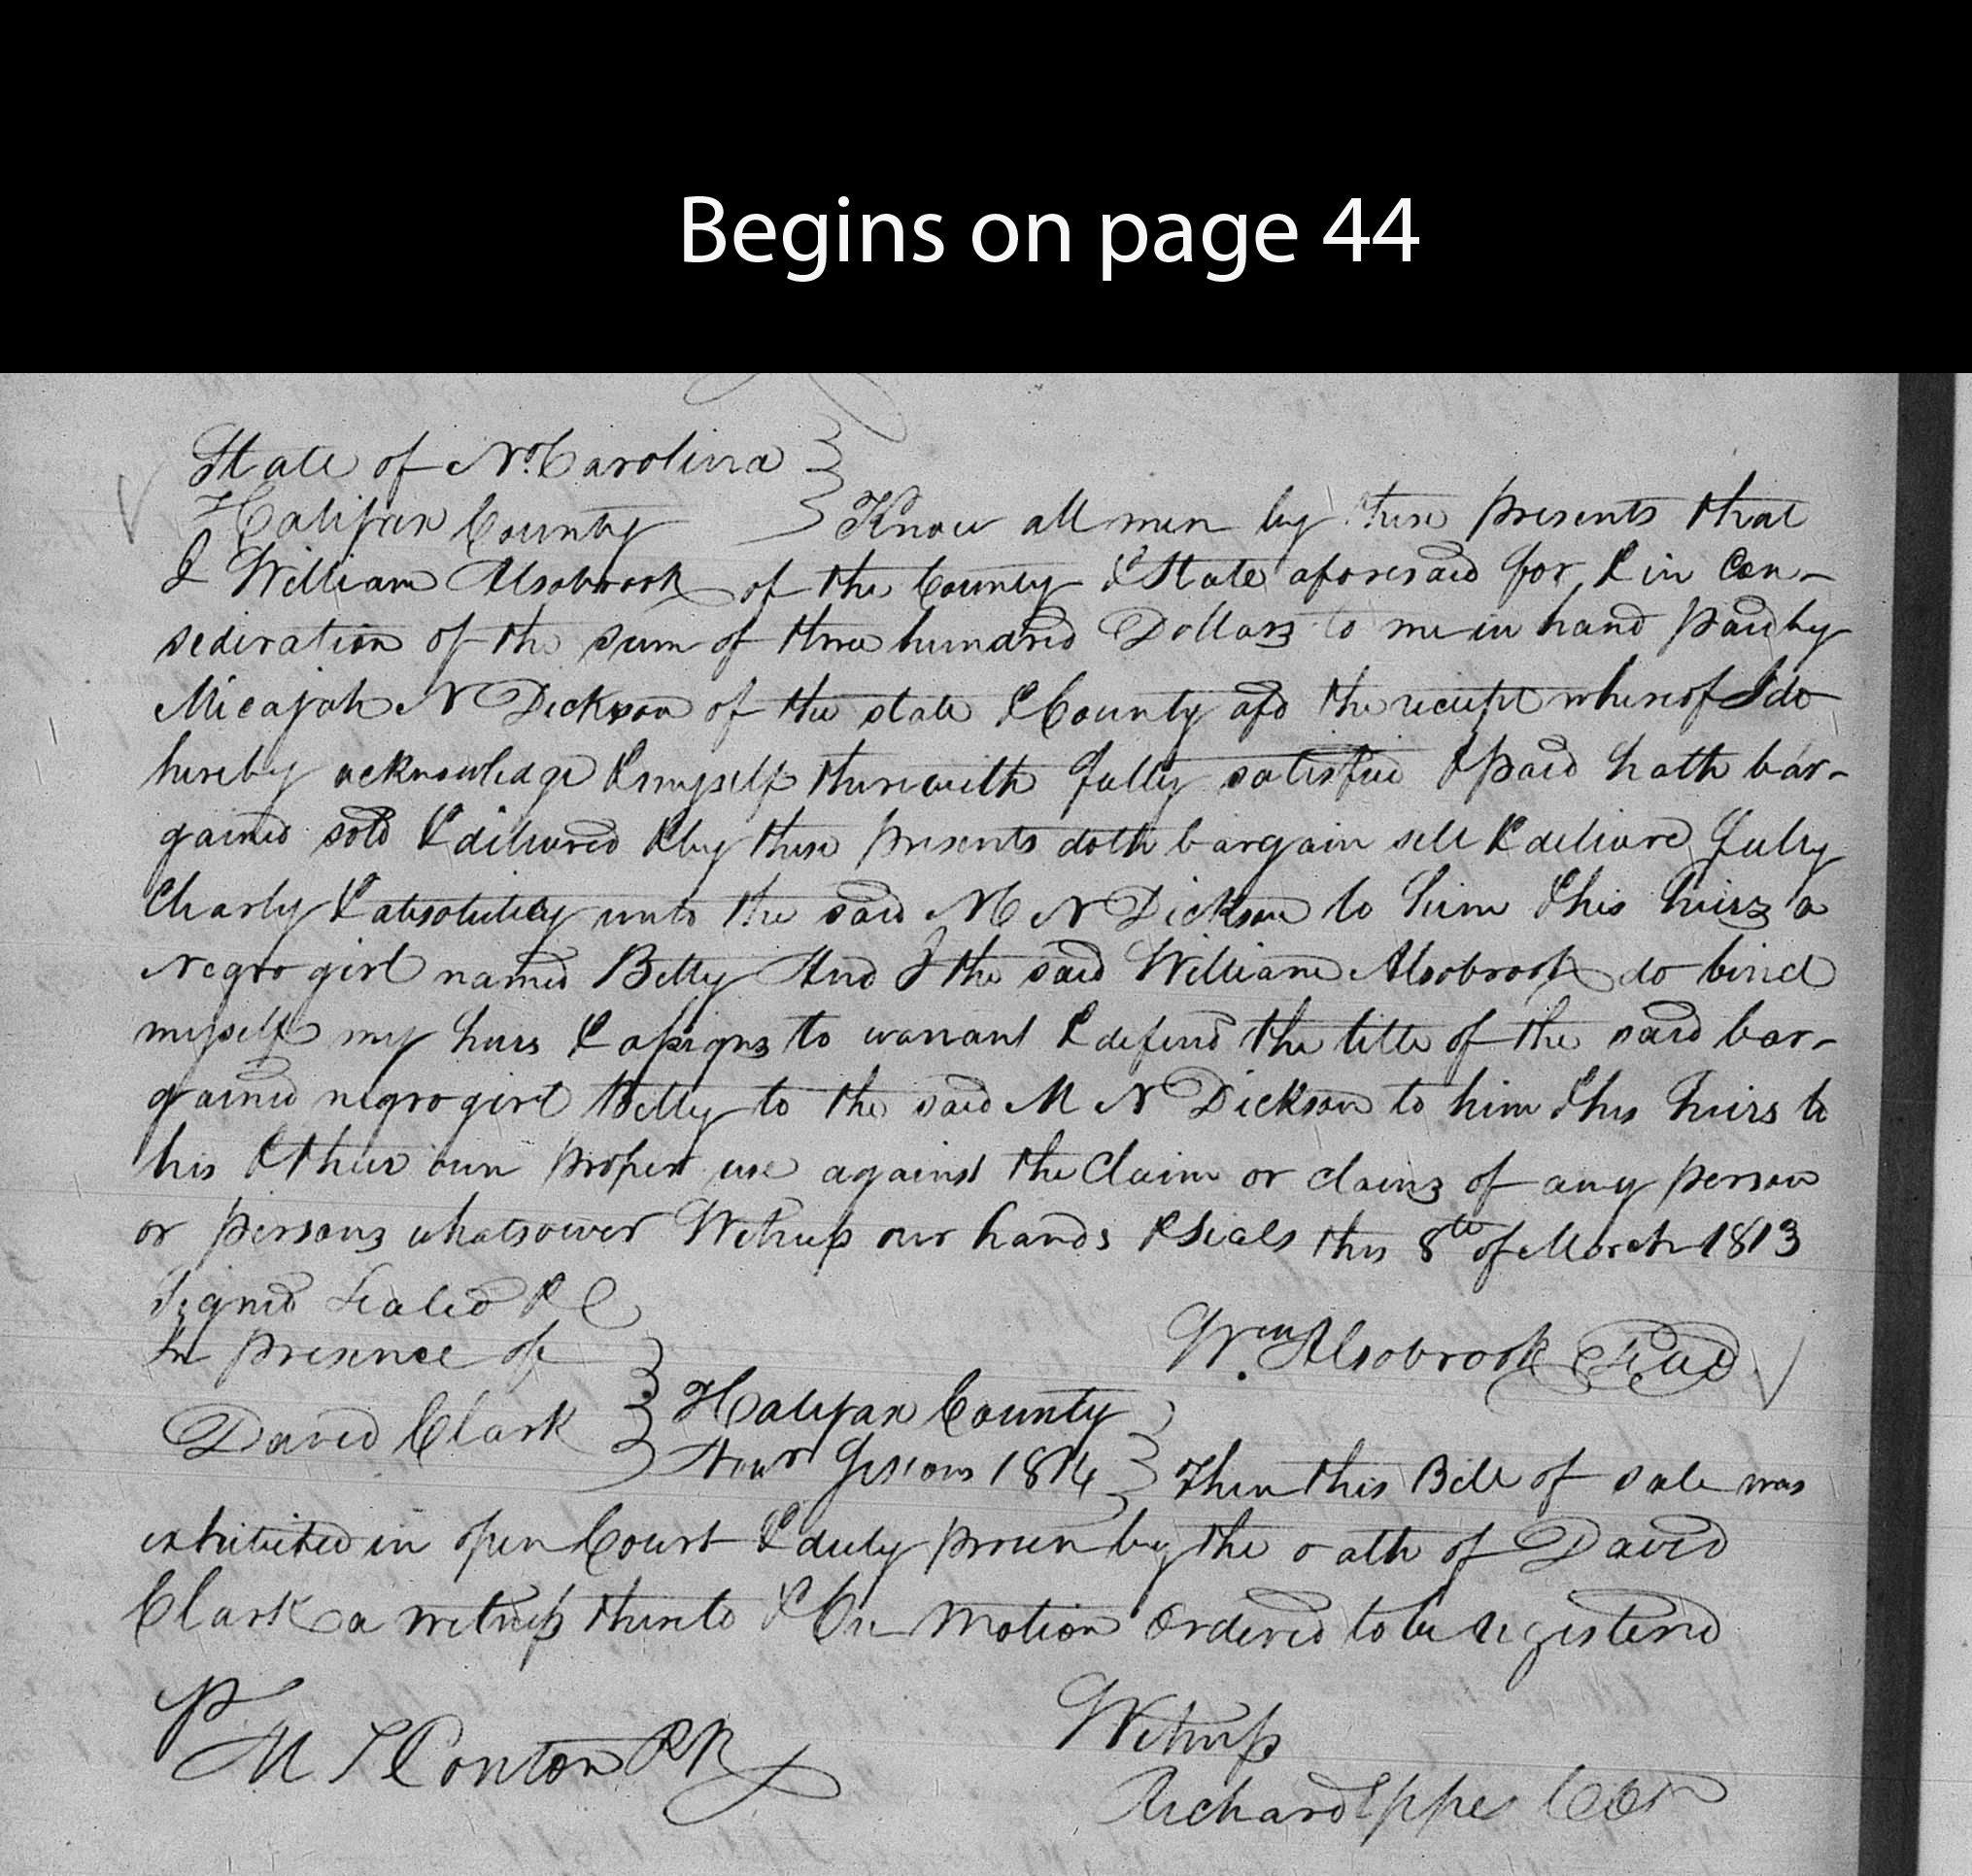 Begins on page 44
State of No. Carolina
Halifax County Know all men by these presents that
I William Alsobrook of the County & State aforesaid for & in Con-
sederation of the sum of three hundred Dollars to me in hand paid by
Micajah N Dickson of the state & County afd the receipt whereof I do
hereby acknowledge & myself therewith fully satisfied & paid hath bar-
gained sold & delivered & by these presents doth bargain sell & deliver fully
Clearly & absolutely unto the said M N Dickson to him & his heirs a
Negro girl named Betty And I the said William Alsobrook do bind
myself my heirs & assigns to warrant & defend the title of the said bar-
gained negro girl Betty to the said M N Dickson to him & his heirs to
his & their own proper use against the Claim or claims of any person
or persons whatsoever Witness our hands & Seals this 8th of March 1813
Signed Sealed &C
In presence of
Wm. Alsobrook Seal
David Clark Halifax County
Sessions 1814 Then this Bill of sale was
exhibited in open Court & duly proven by the oath of David
Clark a witness thereto & On Motion Ordered to be registered
P
Witness
M Conton PR
Richard Eppes